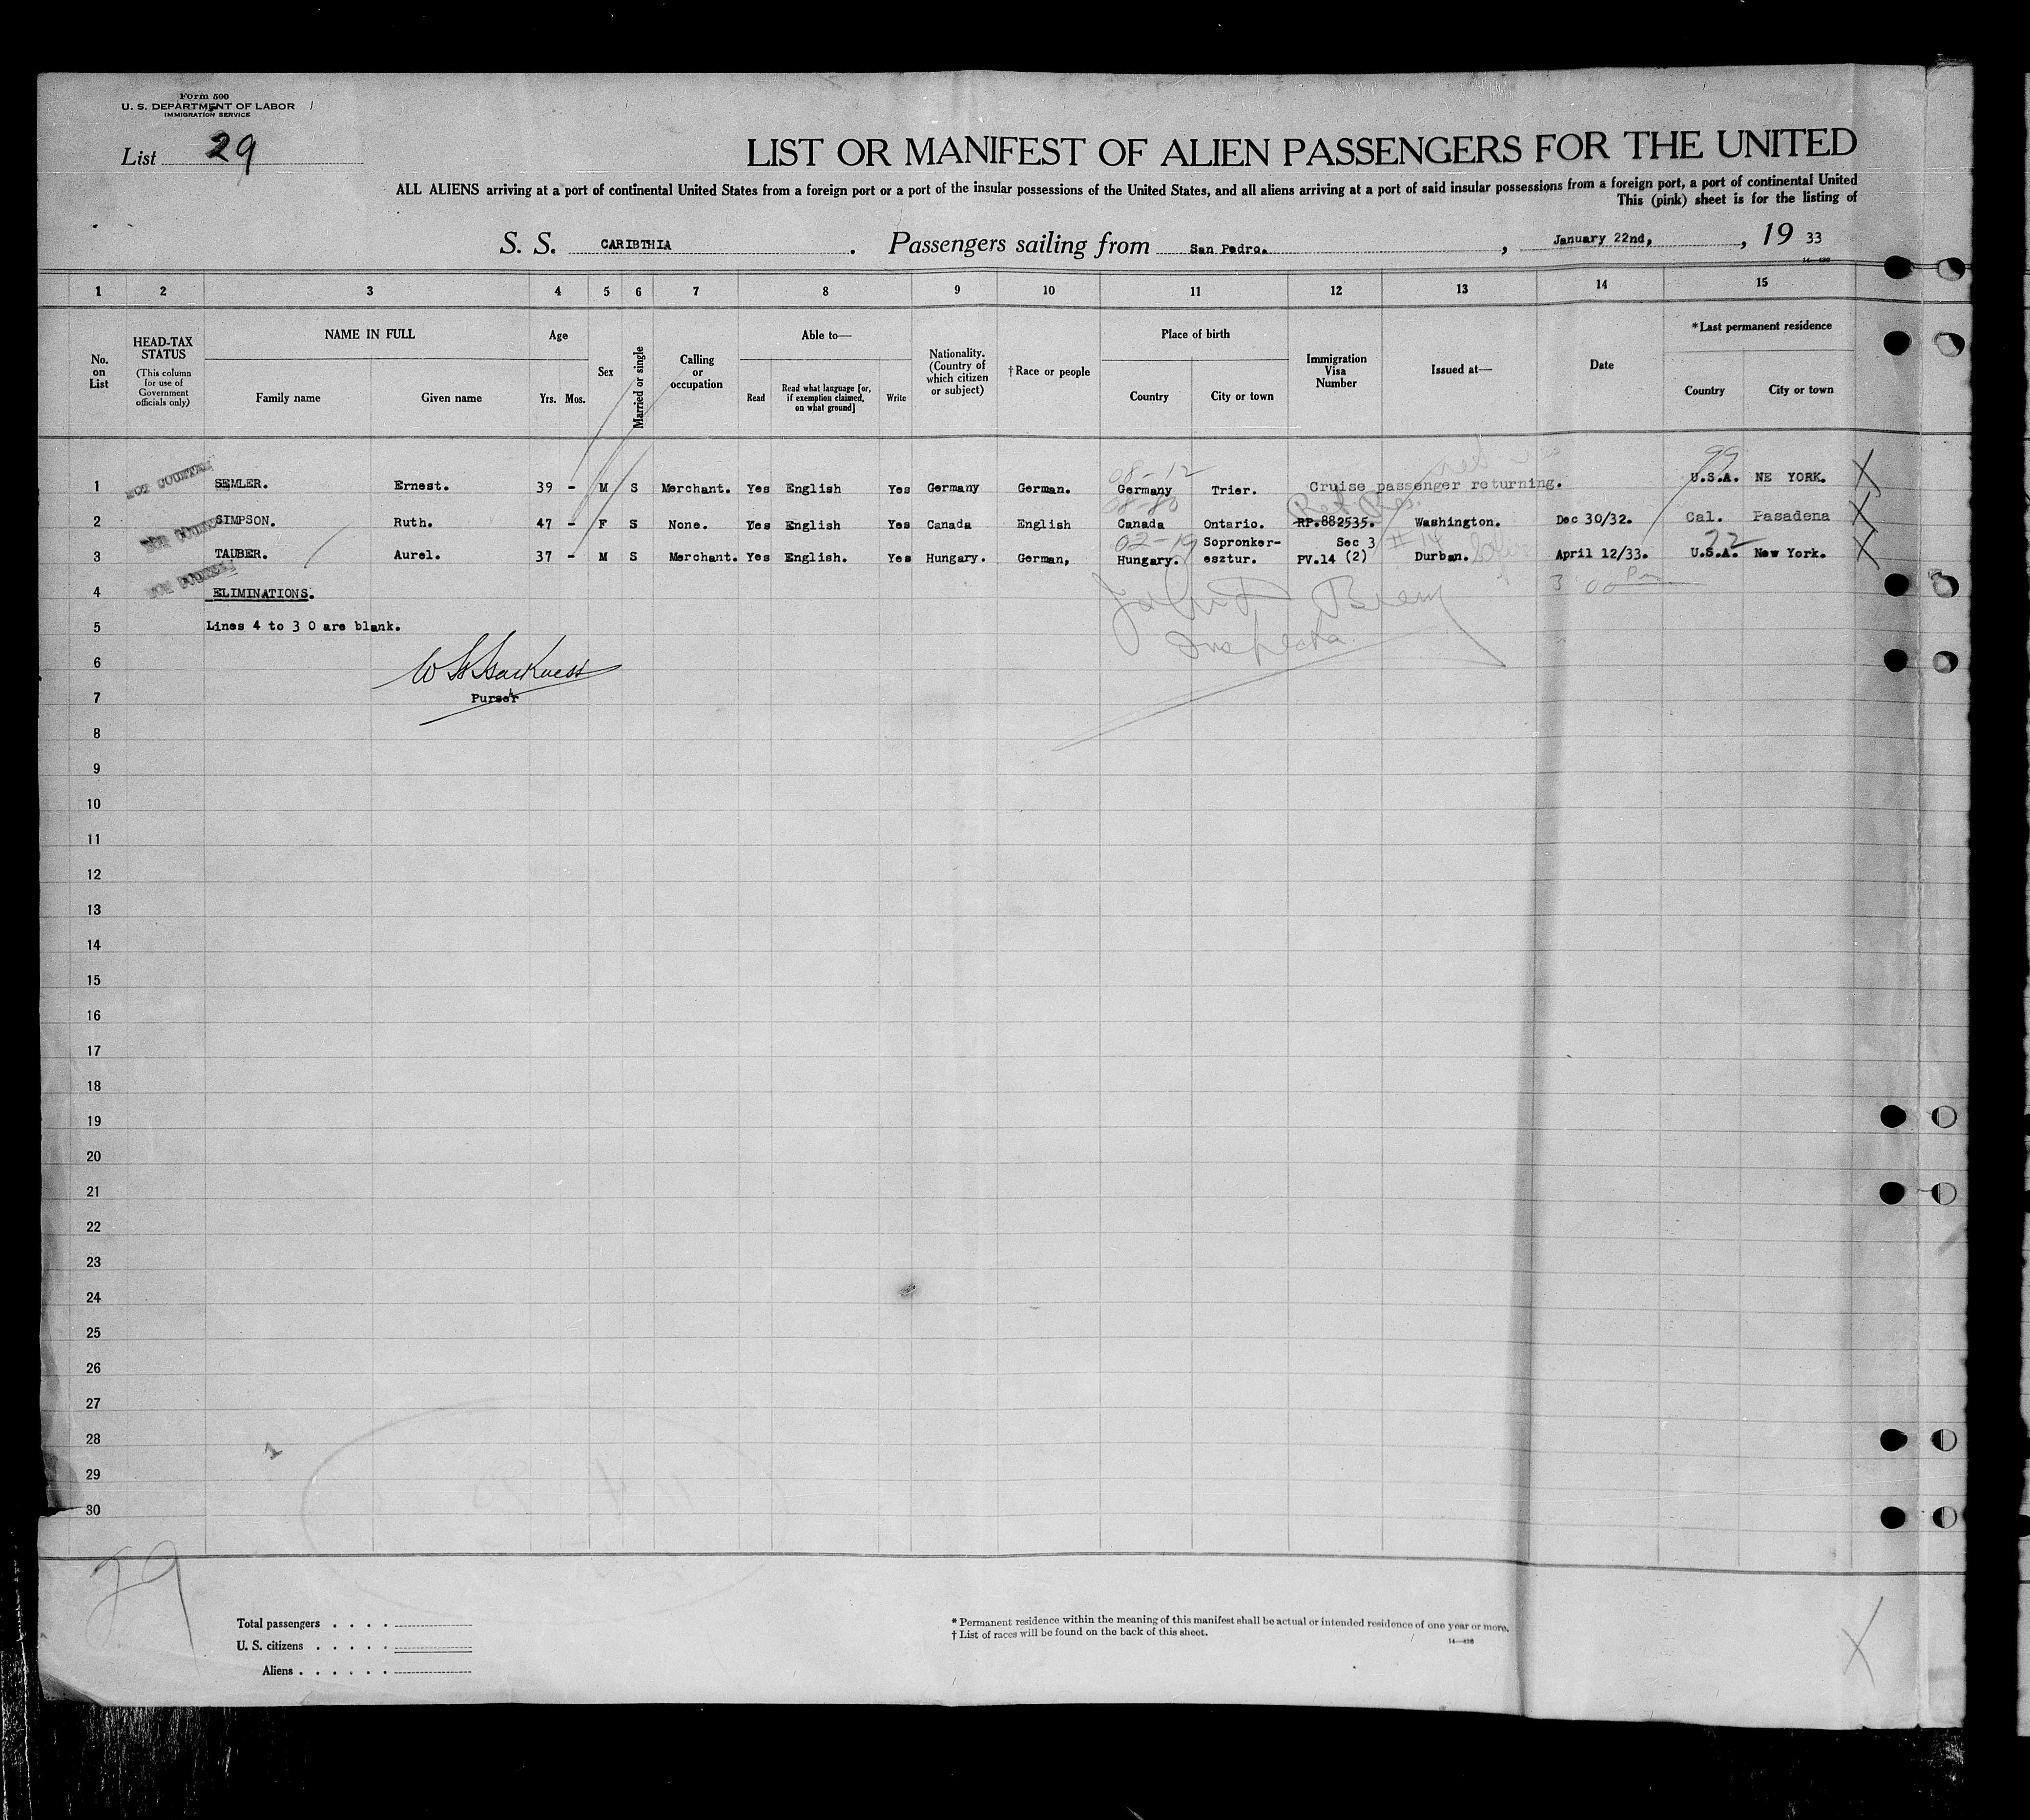 Form 500
U. S. DEPARTMENT OF LABOR
IMMIGRATION SERVICE
List 29
LIST OR MANIFEST OF ALIEN PASSENGERS FOR THE UNITED
ALL ALIENS arriving at a port of continental United States from a foreign port or a port of the insular possessions of the United States, and all aliens arriving at a port of said insular possessions from a foreign port, a port of continental United
This (pink) sheet is for the listing of
S. S. CARIBTHIA. Passengers sailing from San Pedro. , January 22nd, , 19 33
14—430
1 2 3 4 5 6 7 8 9 10 11 12 13 14 15
No. on List
HEAD-TAX STATUS
(This column for use of Government officials only)
NAME IN FULL
Family name Given name
Age
Yrs. Mos.
Sex
Married or single
Calling or occupation
Able to—
Read Read what language [or, if exemption claimed, on what ground] Write
Nationality. (Country of which citizen or subject)
†Race or people
Place of birth
Country City or town
Immigration Visa Number
Issued at—
Date
*Last permanent residence
Country City or town
08-12 99
1 NOT COUNTED SEMLER. Ernest. 39 - M S Merchant. Yes English Yes Germany German. Germany Trier. Cruise passenger returning. U.S.A. NE YORK. X
08-80 Ret Res.
2 SIMPSON. Ruth. 47 - F S None. Yes English Yes Canada English Canada Ontario. RP.882535. Washington. Dec 30/32. Cal. Pasadena X
02-19 Sopronker- Sec 3 #14 72
3 TAUBER. Aurel. 37 - M S Merchant. Yes English. Yes Hungary. German, Hungary. esztur. PV.14 (2) Durban. April 12/33. U.S.A. New York. X
4 ELIMINATIONS. 3 00 Pm
5 Lines 4 to 3 0 are blank.
Inspector
6 W H Harkness
7 Purser
8
9
10
11
12
13
14
15
16
17
18
19
20
21
22
23
24
25
26
27
28
29
30
29
Total passengers . . . .
U. S. citizens . . . . .
Aliens . . . . . .
* Permanent residence within the meaning of this manifest shall be actual or intended residence of one year or more.
† List of races will be found on the back of this sheet.
14—430
X